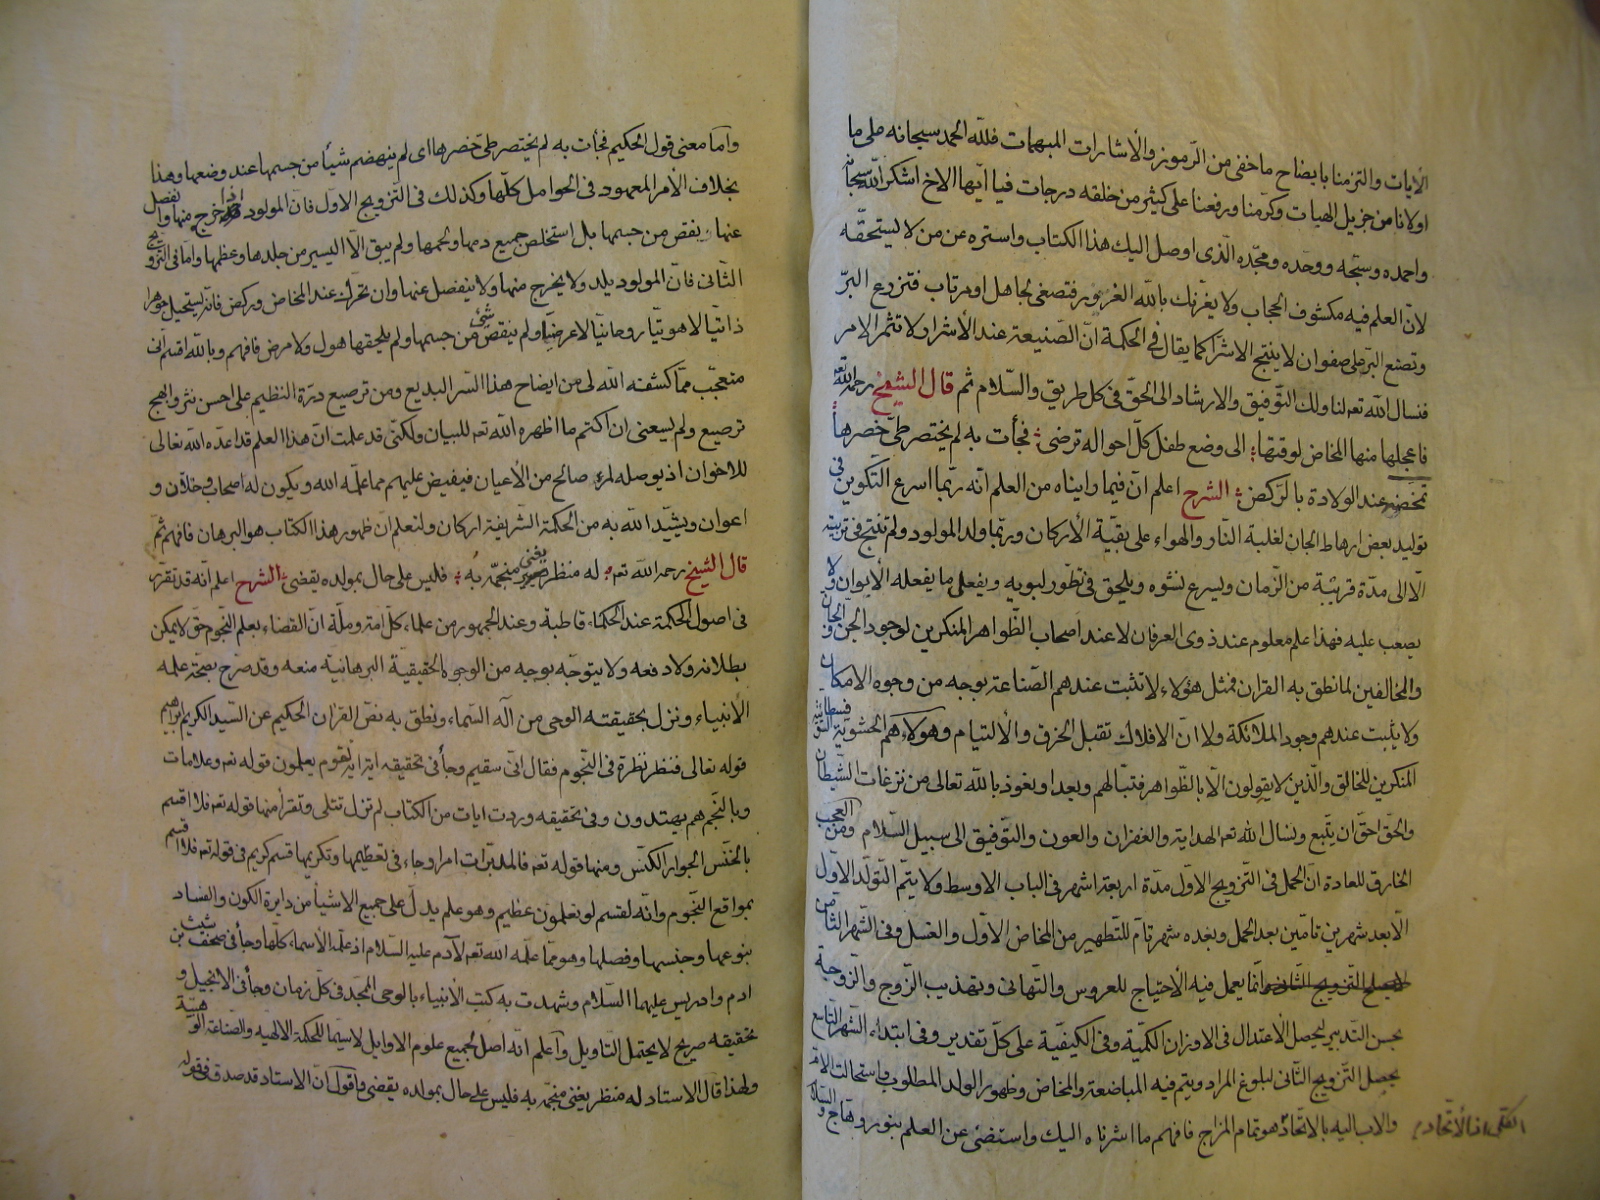 الآيات والتزمنا بايضاح ما خفى من الرموز والاشارات المبهمات فلله الحمد سبحانه على ما
اولانا من جزيل الهبات وكرمنا ورفعنا على كثير من خلقه درجات فيا ايها الاخ اشكر الله سبحانه
واحمده وسبحه ووحده ومجده الذى اوصل اليك هذا الكتاب واستره عن من لا يستحقه
لان العلم فيه مكشوف الحجاب ولا يغرنك بالله الغرور فتصغى لجاهل او مرتاب فتزرع البر
وتضع البر على صفوان لا ينتج الاشراكما يقال فى الحكمة ان الصنيعة عند الاشرار لا تثمر الا مر
فنسال الله تعه لنا ولك التوفيق والارشاد الى الحق فى كل طريق والسلام ثم قال الشيخ رحمه الله تعه
فاعجلها منها المخاض لوقتها الى وضع طفل كل احواله ترضى فجأت به لم يختصر طى خصرها
تمخض عند الولادة بالركض الشرح اعلم ان فيما راينا من العلم انه ربما اسرع التكوين فى
توليد بعض ارهاط الجان لغلبة النار والهواء على بقية الاركان وربما ولد المولود ولم تنتج فى تربيته
الا الى مدة قريبة من الزمان ويسرع نشوه ويلحق فى تطور ابويه ويفعل ما يفعله الابوان ولا
يصعب عليه فهذا علم معلوم عند ذوى العرفان لا عند اصحاب الظواهر المنكرين لوجود الجن والجان
والمخالفين لما نطق به القرآن فمثل هؤلاء لا تثبت عندهم الصناعة بوجه من وجوه الامكان
ولا يثبت عندهم وجود الملائكة ولا ان الافلاك تقبل الخرق والالتيام وهولاء هم الحشوية السوفسطائية
المنكرين للخالق والذين لا يقولون الا بالظواهر فتبا لهم وبعدا ونعوذ بالله تعالى من نزغات الشيطان
والحق احق ان يتبع ونسال الله تعه الهداية والغفران والعون والتوفيق الى سبيل السلام ومن العجب
الخارق للعادة ان الحمل فى التزويج الاول مدة اربعة اشهر فى الباب الاوسط ولا يتم التولد الاول
الا بعد شهرين تامين بعد الحمل وبعده شهر تام للتطهير من المخاض الاول والغسل وفى الشهر الثامن
انما يعمل فيه الاحتياج للعروس والتهانى وتهذيب الزوج والزوجة
بحسن التدبير ليحصل الاعتدال فى الاوزان الكمية وفى الكيفية على كل تقدير وفى ابتداء الشهر التاسع
يحصل التزويج الثانى لبلوغ المراد ويتم فيه المباضعة والمخاض وظهور الولد المطلوب واستحالت الام
والاب اليه بالاتحاد هو تمام المزاج فافهم ما اشرناه اليك واستضئ من العلم بنور وهاج والسلام
واما معنى قول الحكيم فجأت به لم يختصر طى خصرها اى لم ينهضم شيأ من جسمها عند وضعها وهذا
بخلاف الامر المعهود فى الحوامل كلها وكذلك فى التزويج الاول فان المولود اذا خرج منها وانفصل
عنها ينقص من جسمها بل استخلص جميع دمها ولحمها ولم يبق الا اليسير من جلدها وعظمها واما فى التزويج
الثانى فان المولود يلد ولا يخرج منها ولا ينفصل عنها وان تحرك عند المخاض وركض فانه يستحيل جوهرا
ذاتيا لاهوتيا روحانيا لا عرضيا ولم ينقص شئ من جسمها ولم يلحقها هول ولا مرض فافهم وبالله اقسم انى
متعجب مما كشفه الله لى من ايضاح هذا السر البديع ومن ترصيع درة النظيم على احسن نثر وابهج
ترصيع ولم يسعنى ان اكتم ما اظهره الله تعه للبيان ولكنى قد علمت ان هذا العلم قد اعده الله تعالى
للاخوان اذ يوصله لمرء صالح من الاعيان فيفيض عليهم مما علمه الله ويكون له اصحاب وخلان و
اعوان ويشيد الله به من الحكمة الشريفة اركان ولنعلم ان ظهور هذا الكتاب هو البرهان فافهم ثم
قال الشيخ رحمه الله تعه له منظر يغنى منجمه به فليس على حال بمولده يقضى الشرح اعلم انه قد تقرر
فى اصول الحكمة عند الحكماء قاطبة وعند الجمهور من علماء كل امة وملة ان القضاء بعلم النجوم حق لا يمكن
بطلانه ولا دفعه ولا يتوجه بوجه من الوجوه الحقيقية البرهانية منعه وقد صرح بصحة علمه
الانبياء ونزل بحقيقته الوحى من اله السماء ونطق به نص القران الحكيم عن السيد الكريم ابراهيم
قوله تعالى فنظر نظرة فى النجوم فقال انى سقيم وجأ فى تحقيقه اية لقوم يعلمون قوله تعه وعلامات
وبالنجم هم يهتدون وفى تحقيقه وردت ايات من الكتاب لم تزل تتلى وتقرأ منها قوله تعه فلا اقسم
بالخنس الجوار الكنس ومنها قوله تعه فالمدبرات امرا وجاء فى تعظيمها وتكريمها قسم كريم فى قوله تعه فلا اقسم
بمواقع النجوم وانه لقسم لو تعلمون عظيم وهو علم يدل على جميع الاشيأ من دايرة الكون والفساد
بنوعها وجنسها وفصلها وهو مما علمه الله تعه لآدم عليه السلام اذ علمه الاسماء كلها وجأ فى صحف شيث بن
ادم وادريس عليهما السلام وشهدت به كتب الانبياء بالوحى المجد فى كل زمان وجأ فى الانجيل و
تحقيقه صريح لا يحتمل التاويل واعلم انه اصل لجميع علوم الاوايل لا سيما للحكمة الالهيه والصناعة
ولهذا قال الاستاد له منظر يغنى منجمه به فليس على حال بمولده يقضى واقول ان الاستاد قد صدق فى قوله